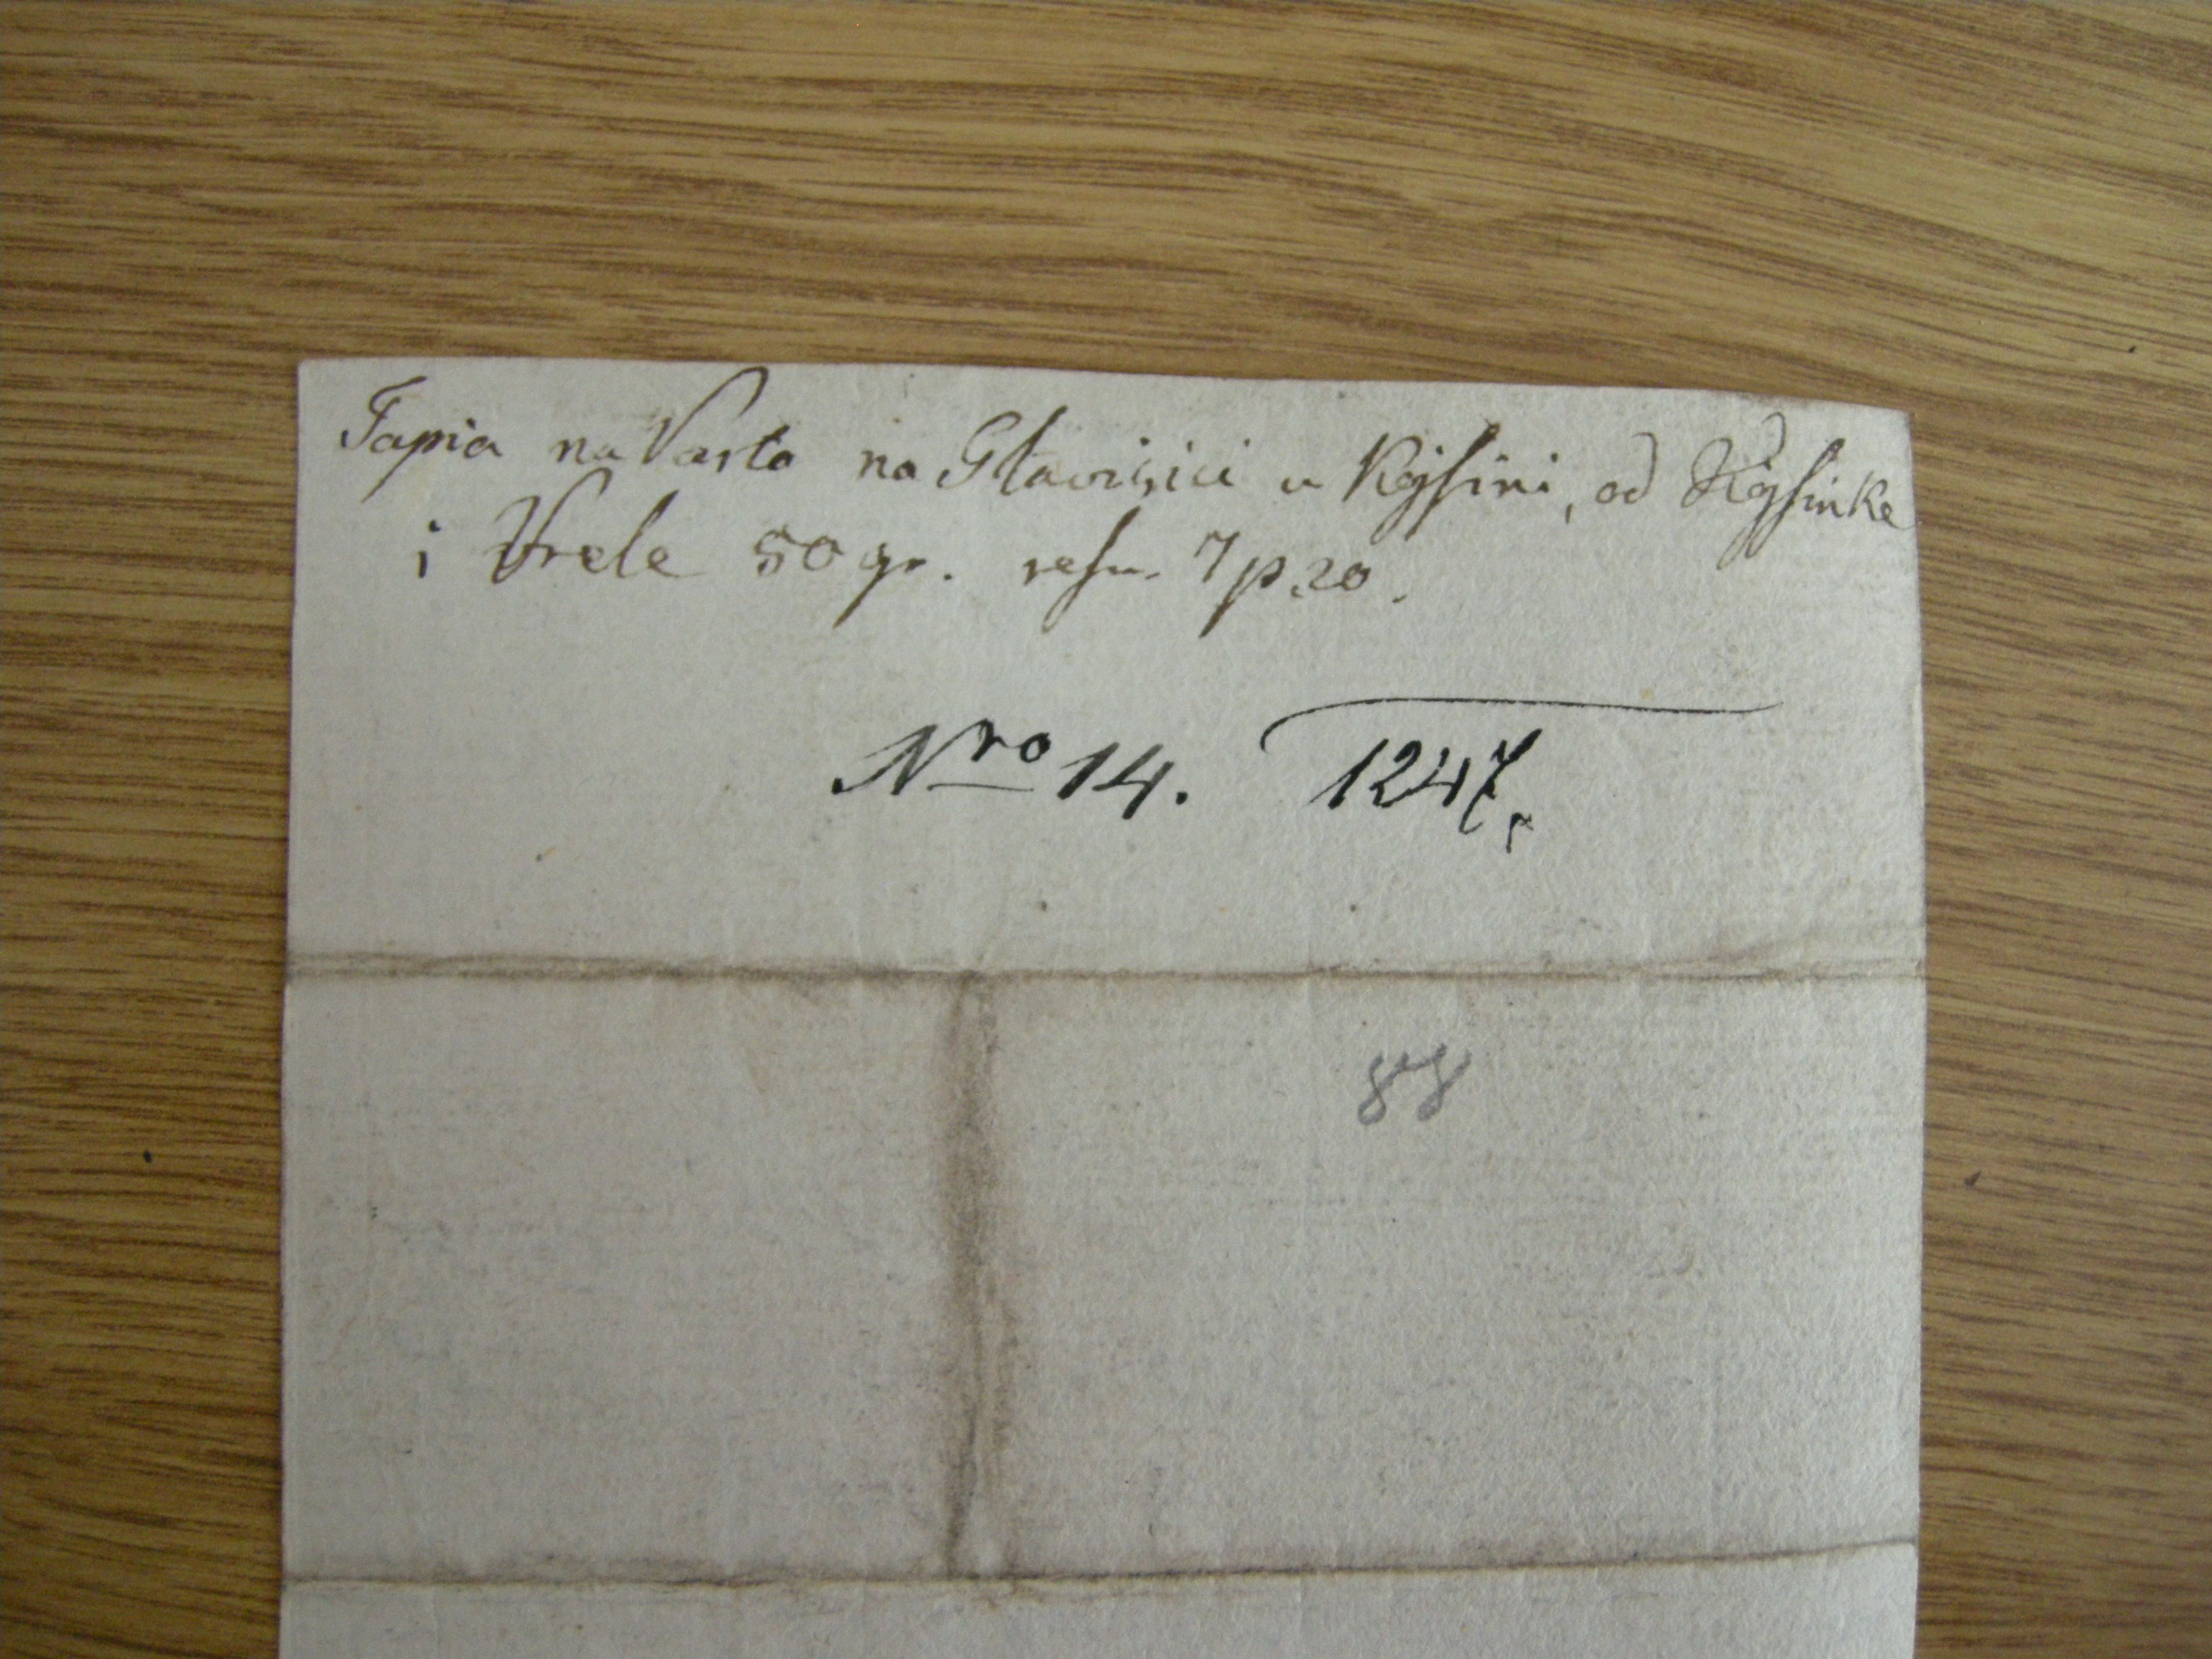 Tapia na Vasta na Glavisici u Kijsini, od Kijsinke
i Vrele 50 gr. resm. 7 p 20.
Nro 14. 1247.
88